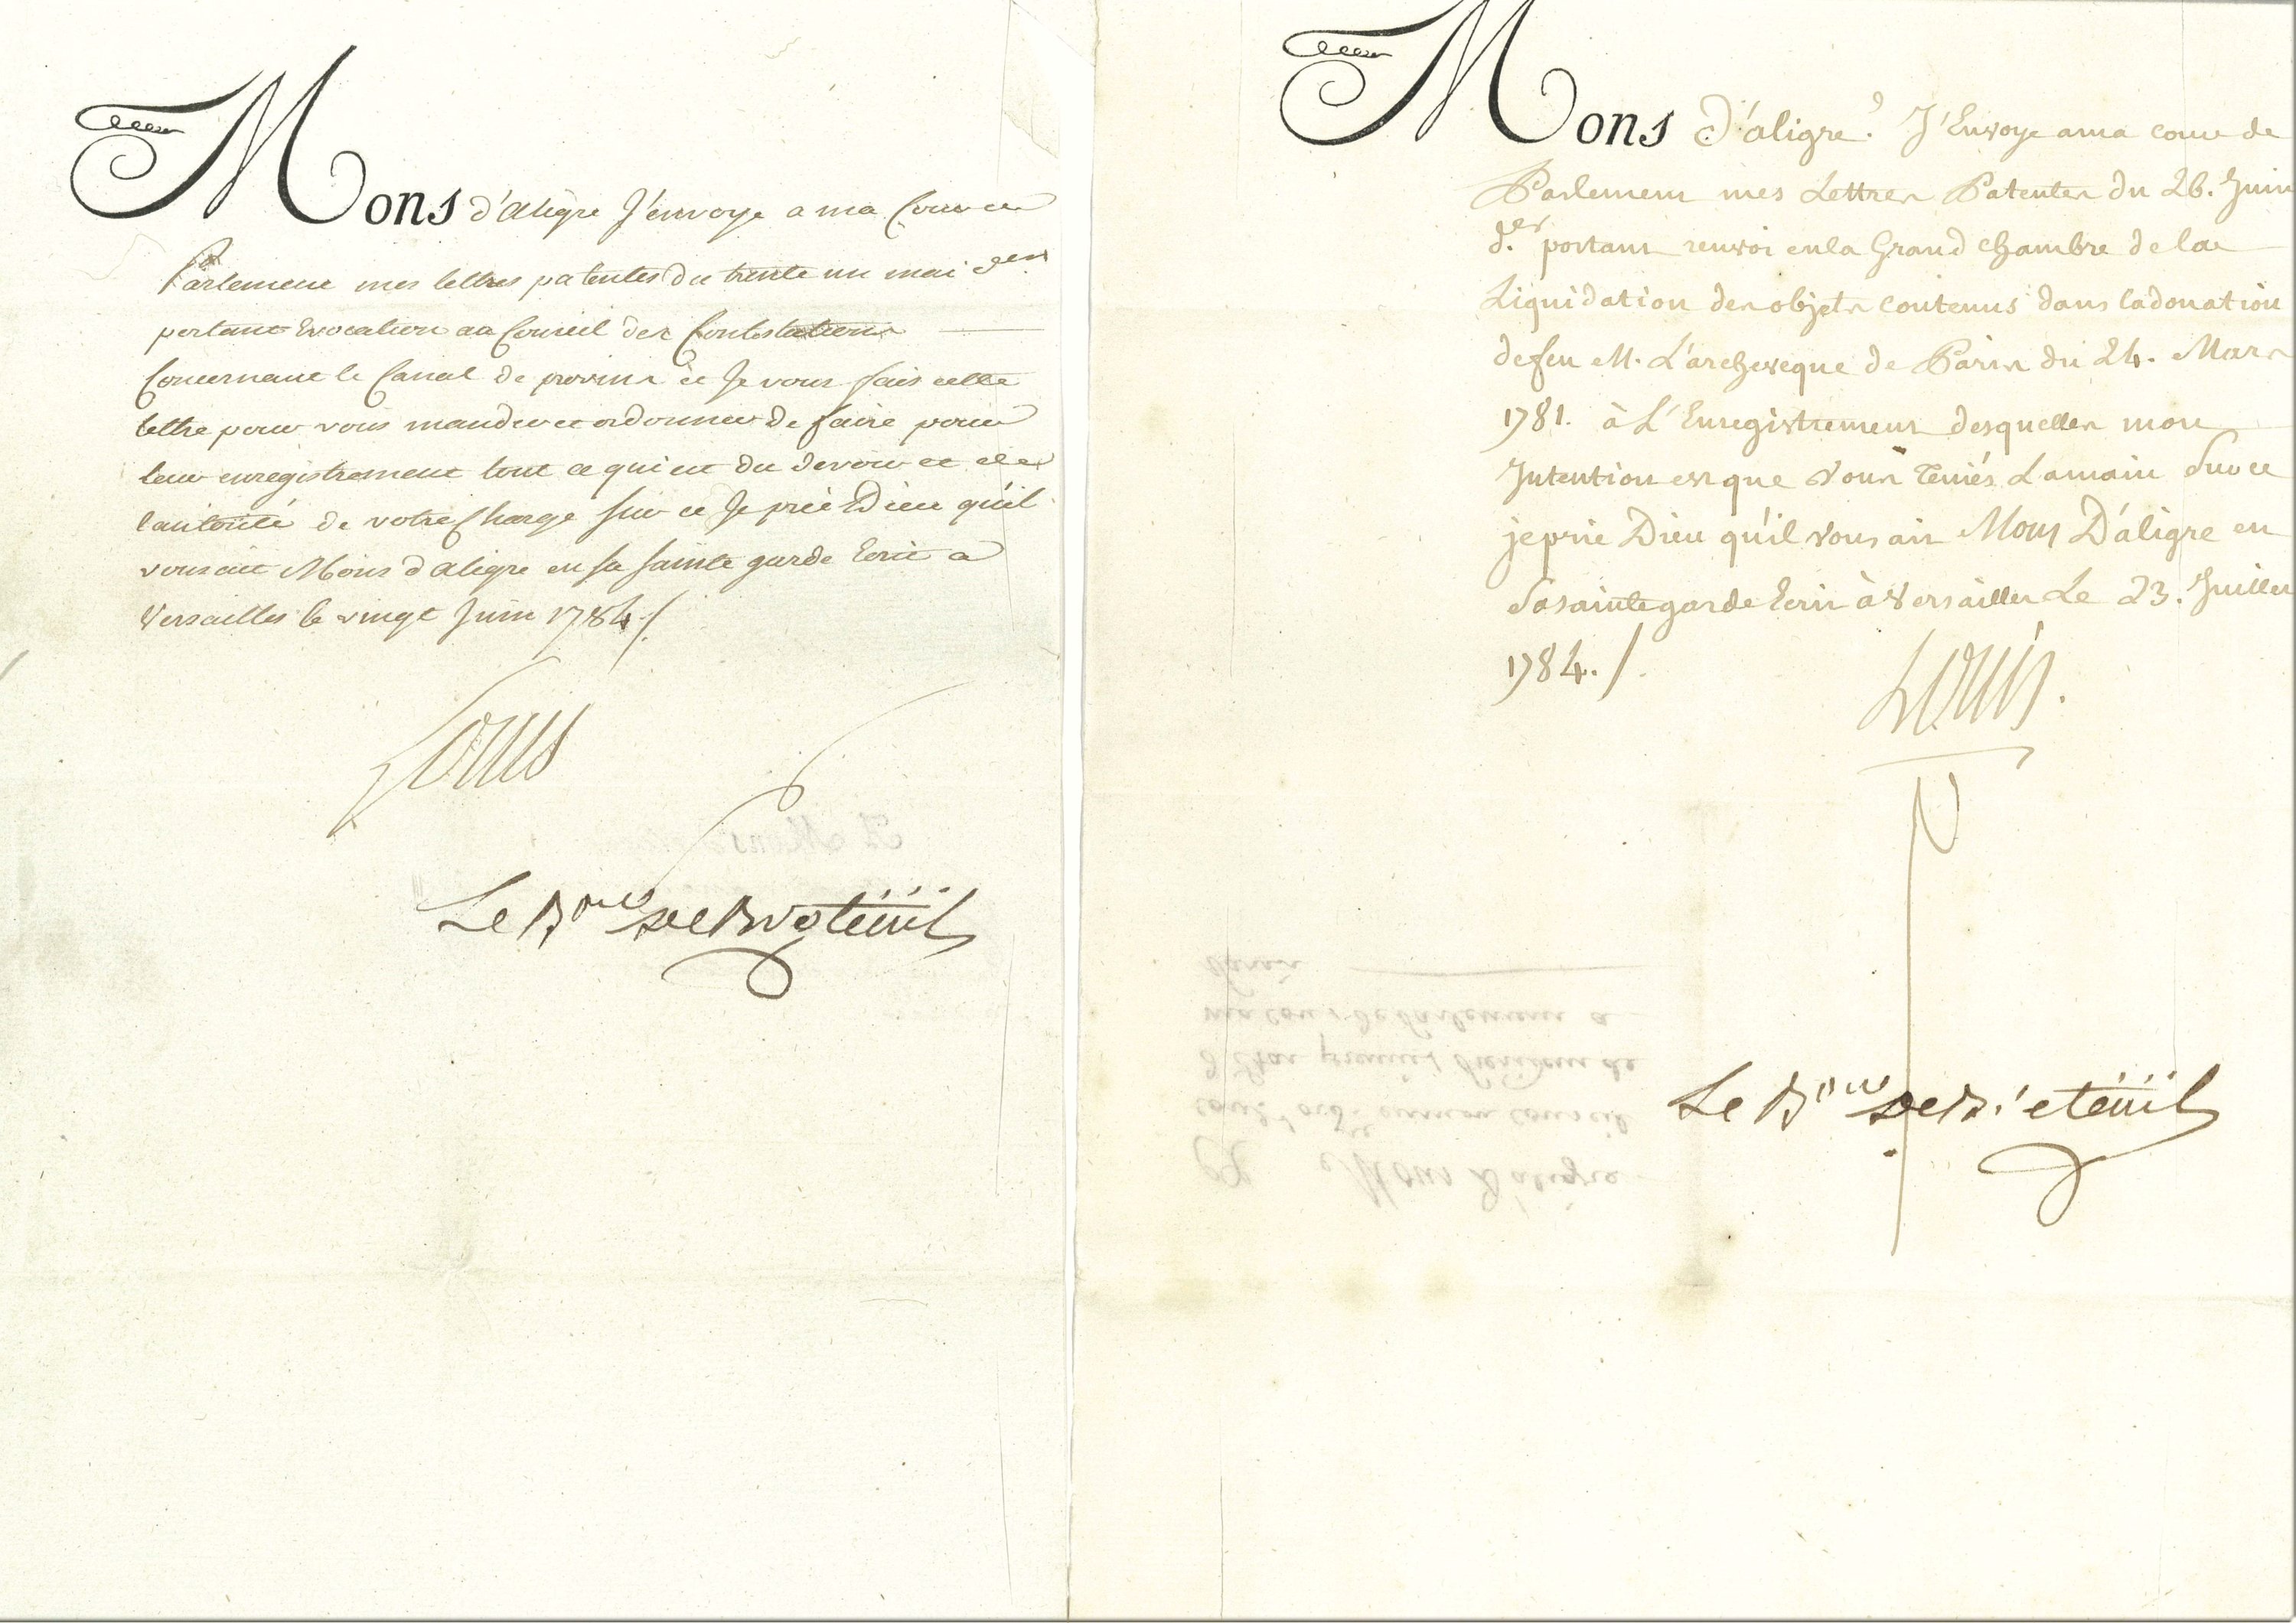 Mons d'Aligre J'envoye a ma Cour de
Parlement mes lettres patentes du trente un mai der
portant Evocation au Conseil des Contestations
Concernant le Canal de provins et Je vous fais cette
lettre pour vous mander et ordonner de faire pour
leur enregistrement tout ce qui est du devoir et de
l'autorité de votre Charge sur ce Je prie Dieu qu'il
vous ait Mons d'aligre en sa sainte garde Ecrit a
Versailles le vingt Juin 1784 ./.
Louis
Le Bon de Breteüil
Mons D'aligre. J'Envoye a ma cour de
Parlement mes Lettres Patentes du 26. Juin
d.er portant renvoi en la Grand Chambre de la
Liquidation des objets contenus dans la donation
de feu M. L'archeveque de Paris du 24. Mars
1781. à L'Enregistrement desquelles mon
Intention est que Vous teniés La main Sur ce
je prie Dieu qu'il Vous ait Mons D'aligre en
Sa sainte garde Ecrit à Versailles Le 23. Juillet
1784. ./.
Louis.
Le Bon de Breteüil
A Mons
A Mons D'aligre
conser ordre en mon Conseil
d'Etat premier President de
ma Cour de Parlement a
Paris